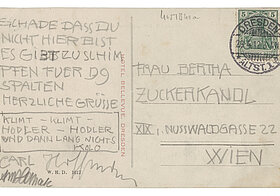 SCHADE DASS DU
NICHT HIER BIST
ES GIBT ZU SCHIM
PFEN FUER D9
SPALTEN
HERZLICHE GRÜSSE
KLIMT – KLIMT –
HODLER – HODLER
UND DANN LANG NICHTS
KOLO
CARL Hoffmann
HOTEL BELLEVUE DRESDEN
W. E. D. 1612
DRESDEN
ALTST. 1
5
FRAU BERTHA
ZUCKERKANDL
XIX. NUSSWALDGASSE 22
WIEN